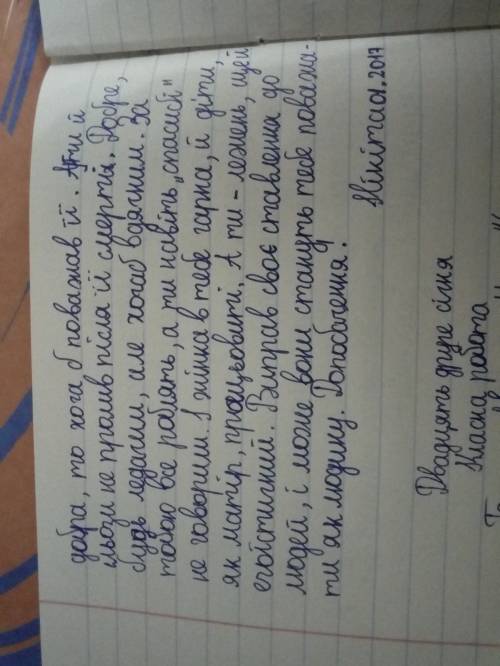 добра, то хоча б поважав її. А ти й
сльози не пролив після її смерті. Добре,
будь ледачим, але хочаб вдячним. За
тобою все роблять, а ти навіть „спасибі"
не говориш. І жінка в тебе гарна, й діти,
як матір, працьовиті. А ти - лежень, ще й
егоїстичний. Виправ своє ставлення до
людей, і може вони стануть тебе поважа-
ти як людину. До побачення!
01.2017
Двадцять друге січня
Класна робота